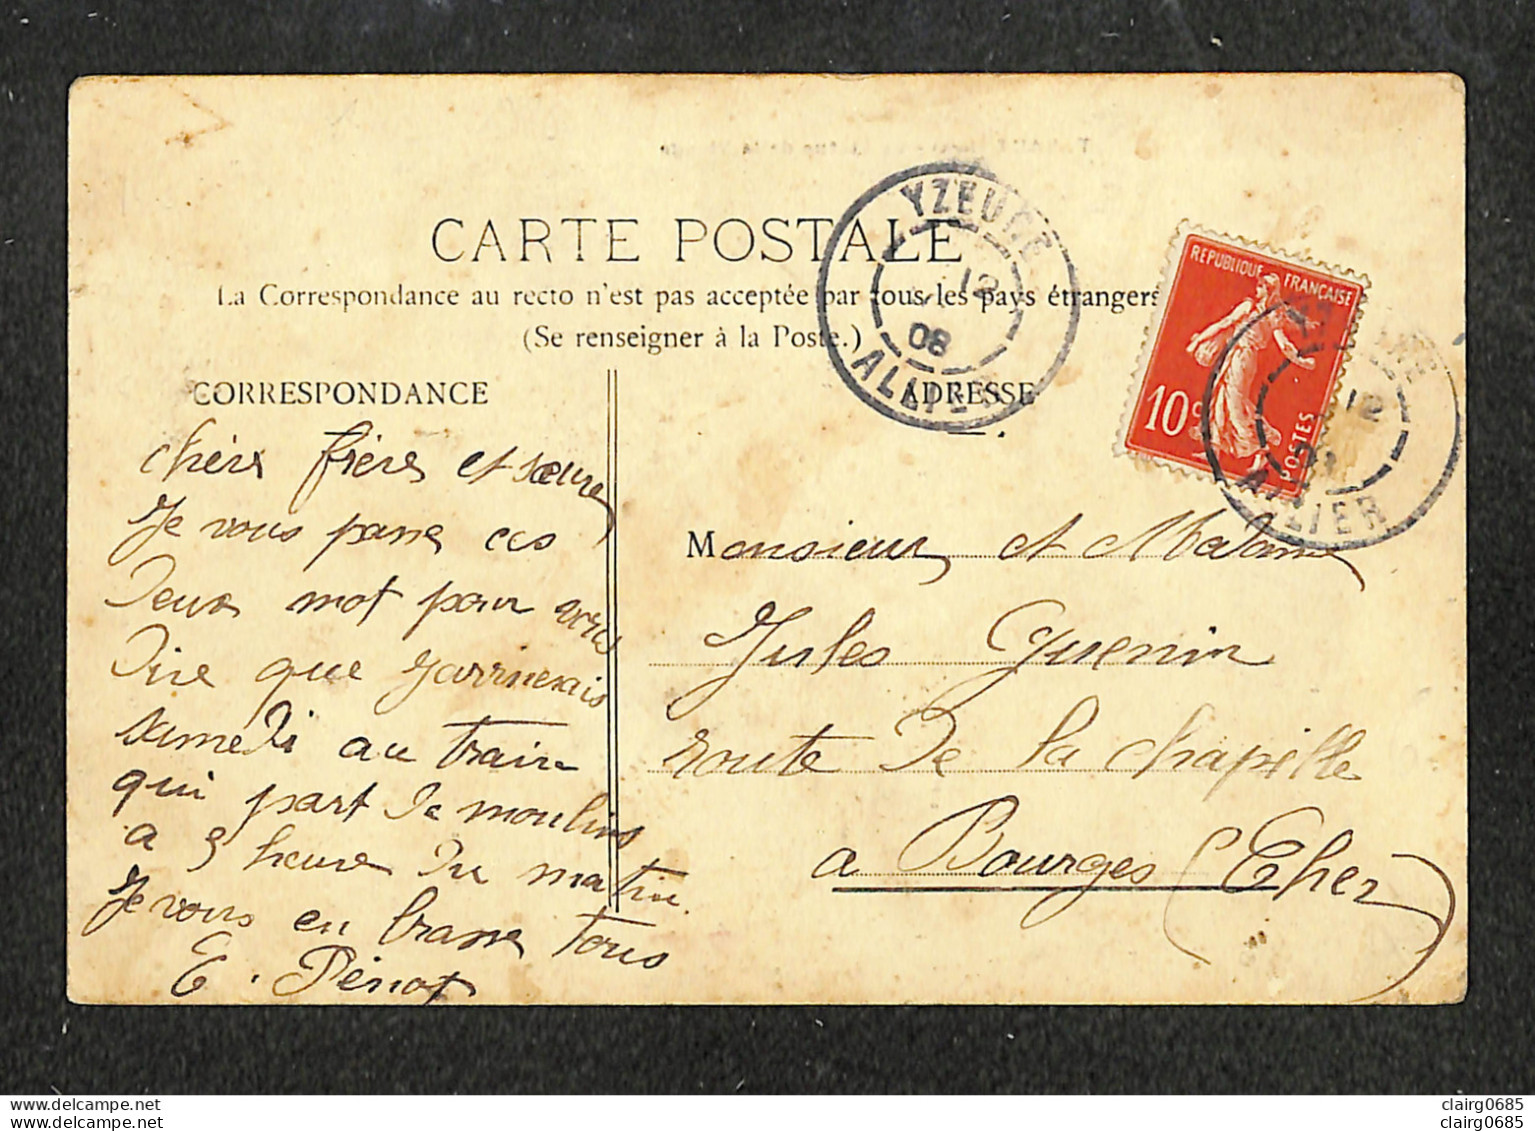 CARTE POSTALE
La Correspondance au recto n'est pas acceptée par tous les pays étrangers
(Se renseigner à la Poste.)
CORRESPONDANCE
ADRESSE
YZEURE
12
08
ALLIER
REPUBLIQUE FRANÇAISE
10c
POSTES
12
ALLIER
chers frères et sœurs
Je vous passe ces
deux mot pour vous
dire que jarriverais
samedi au train
qui part de moulins
a 3 heure du matin.
Je vous en brasse tous
E. Pénot
Monsieur et Madame
Jules Guenin
route de la chapelle
a Bourges (Cher)
www.delcampe.net
clairg0685
www.delcampe.net
clairg0685